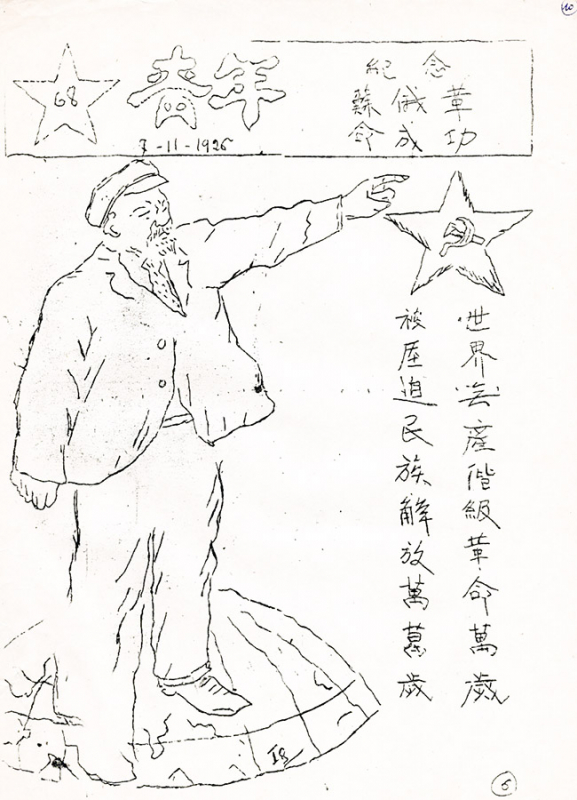 10
68
青年
7-11-1926
紀念
蘇俄革
命成功
世界無產偕級革命萬歲
被压迫民族解放萬萬歲